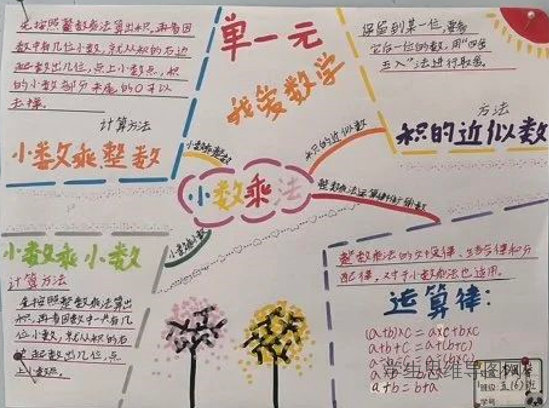 先按照整数乘法算出积,再看因
数中有几位小数,就从积的右边
起数出几位,点上小数点,积
的小数部分末尾的0可以
去掉。
计算方法
小数乘整数
单一元
我爱数学
保留到某一位,要看
它后一位的数,用“四舍
五入”法进行取舍。
方法
积的近似数
小数乘整数
积的近似数
小数乘法
小数乘小数
小数乘小数
计算方法
先按照整数乘法算出
积,再看因数中一共有几
位小数,就从积的右
边起数出几位,点
上小数点。
整数乘法的交换律、结合律和分
配律,对于小数乘法也适用。
运算律:
(a+b)×c=a×c+b×c
a+b+c=a+(b+c)
a+b=b+a
学生思维导图网
班级:五(6)班
学号